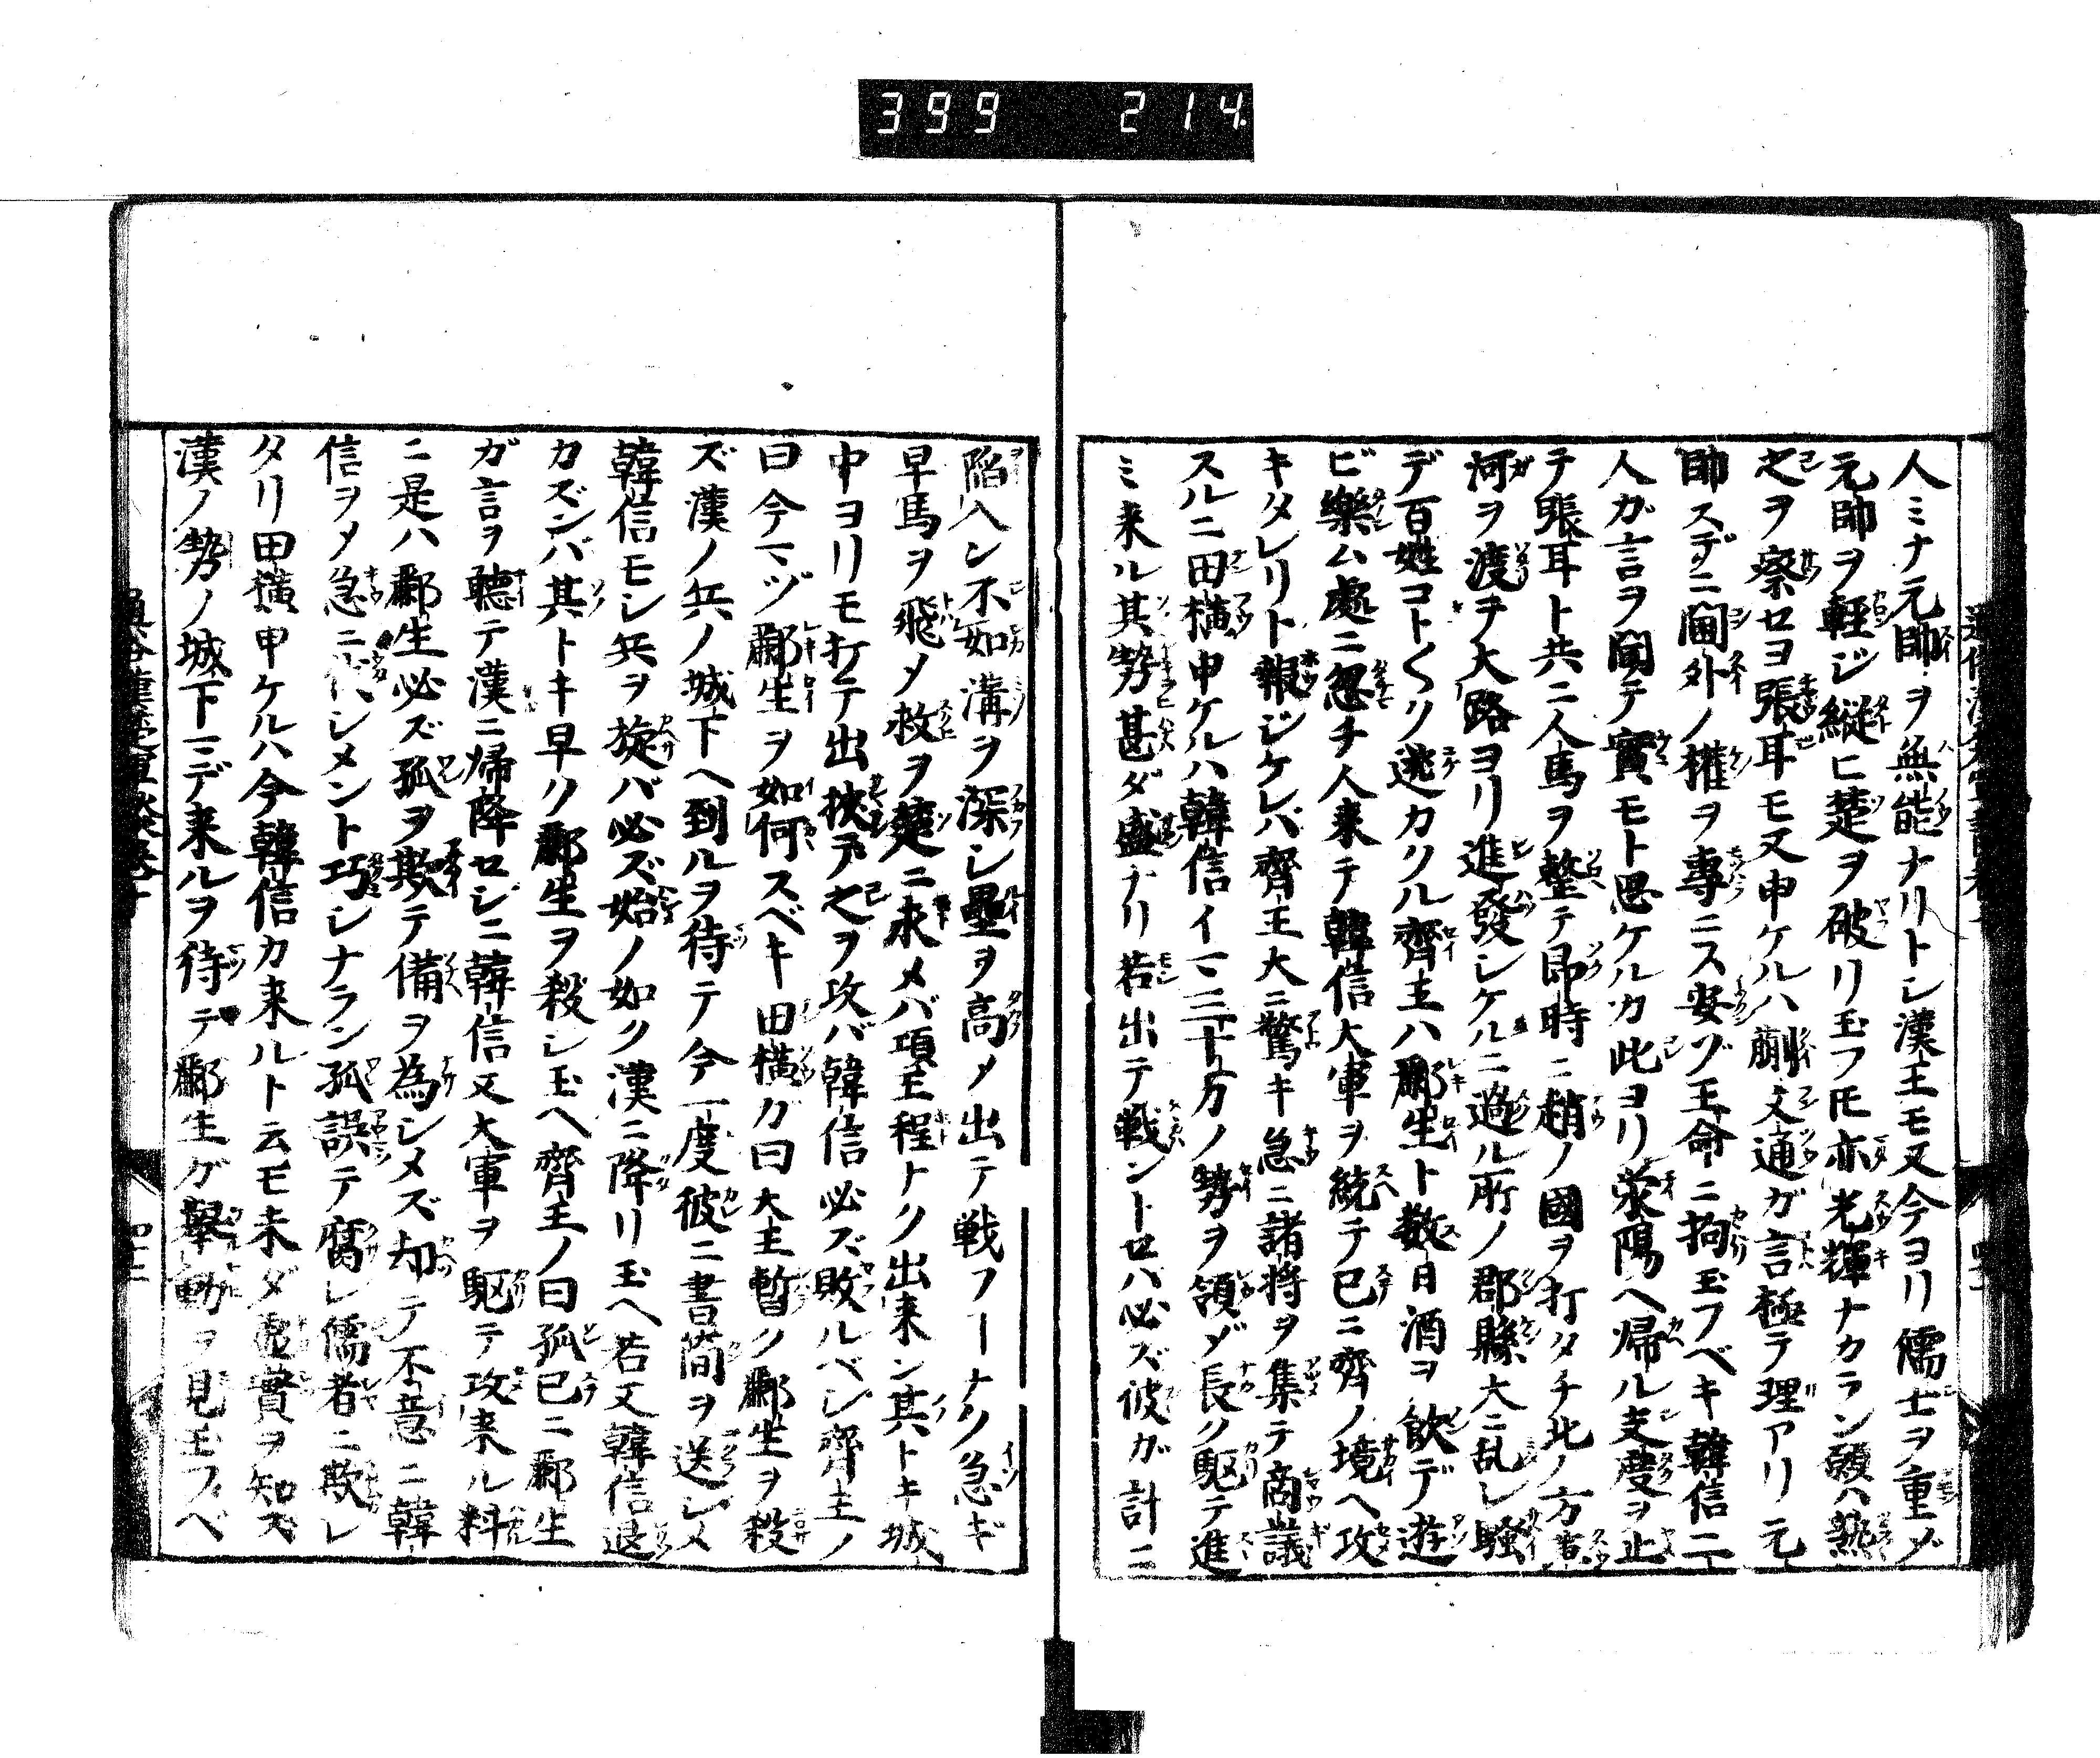 399 214
人ミナ元帥ヲ無能ナリトシ漢王モ又今ヨリ儒士ヲ重ンジ
元帥ヲ軽ジ縦ヒ楚ヲ破リ玉フトモ亦光輝ナカラン願ハ熟
之ヲ察セヨ張耳モ又申ケルハ蒯文通ガ言極テ理アリ元
帥スデニ閫外ノ権ヲ專ニス安ゾ王命ニ拘玉フベキ韓信二
人ガ言ヲ聞テ實モト思ケルカ此ヨリ滎陽ヘ帰ル支度ヲ止
テ張耳ト共ニ人馬ヲ整テ即時ニ趙ノ國ヲ打タチ北ノ方
河ヲ渡テ大路ヨリ進發シケルニ過ル所ノ郡縣大ニ乱レ騒
デ百姓コト〱ク逃カクル齊王ハ酈生ト数日酒ヲ飲デ遊
ビ樂ム處ニ忽チ人来テ韓信大軍ヲ統テ已ニ齊ノ境ヘ攻
キタレリト報ジケレバ齊王大ニ驚キ急ニ諸将ヲ集テ商議
スルニ田横申ケルハ韓信イマ三十万ノ勢ヲ領ジ長ク駆テ進
ミ来ル其勢甚ダ盛ナリ若出テ戦ントセバ必ズ彼ガ計ニ
陥入ン不如溝ヲ深シ壘ヲ高メ出テ戦フコナク急ギ
早馬ヲ飛メ救ヲ楚ニ求メバ項王程ナク出来ン其トキ城
中ヨリモ打テ出挾テ之ヲ攻バ韓信必ズ敗ルベシ齊王ノ
曰今マヅ酈生ヲ如何スベキ田横カ曰大王暫ク酈生ヲ殺
ズ漢ノ兵ノ城下ヘ到ルヲ待テ今一度彼ニ書簡ヲ送シメ
韓信モシ兵ヲ旋バ必ズ始ノ如ク漢ニ降リ玉ヘ若又韓信退
カズンバ其トキ早ク酈生ヲ殺シ玉ヘ齊王ノ曰孤已ニ酈生
ガ言ヲ聴テ漢ニ帰降セシニ韓信又大軍ヲ駆テ攻来ル料
ニ是ハ酈生必ズ孤ヲ欺テ備ヲ為シメズ却テ不意ニ韓
信ヲメ急ニ伐シメント巧シナラン孤誤テ腐レ儒者ニ欺レ
タリ田横申ケルハ今韓信カ来ルト云モ未ダ虚實ヲ知ズ
漢ノ勢ノ城下マデ来ルヲ待テ酈生ガ擧動ヲ見玉フベ